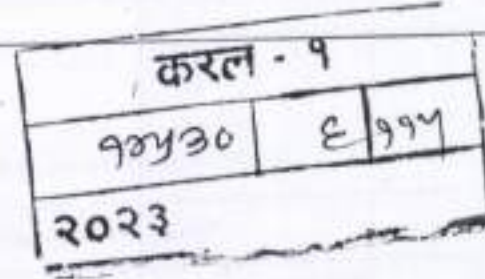 करल - १
१२५३० | ६ | ११५
२०२३